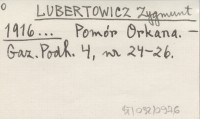 LUBERTOWICZ Zygmunt
1916... Pomór Orkana. —
Gaz. Podh. 4, nr 24-26.